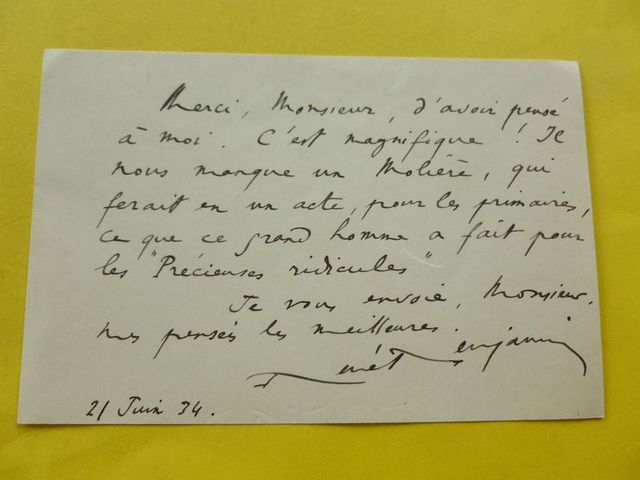 Merci, Monsieur, d'avoir pensé
à moi. C'est magnifique ! Il
nous manque un Molière, qui
ferait en un acte, pour les primaires,
ce que ce grand homme a fait pour
les "Précieuses ridicules"
Je vous envoie, Monsieur,
mes pensées les meilleures.
René Benjamin
21 Juin 34.